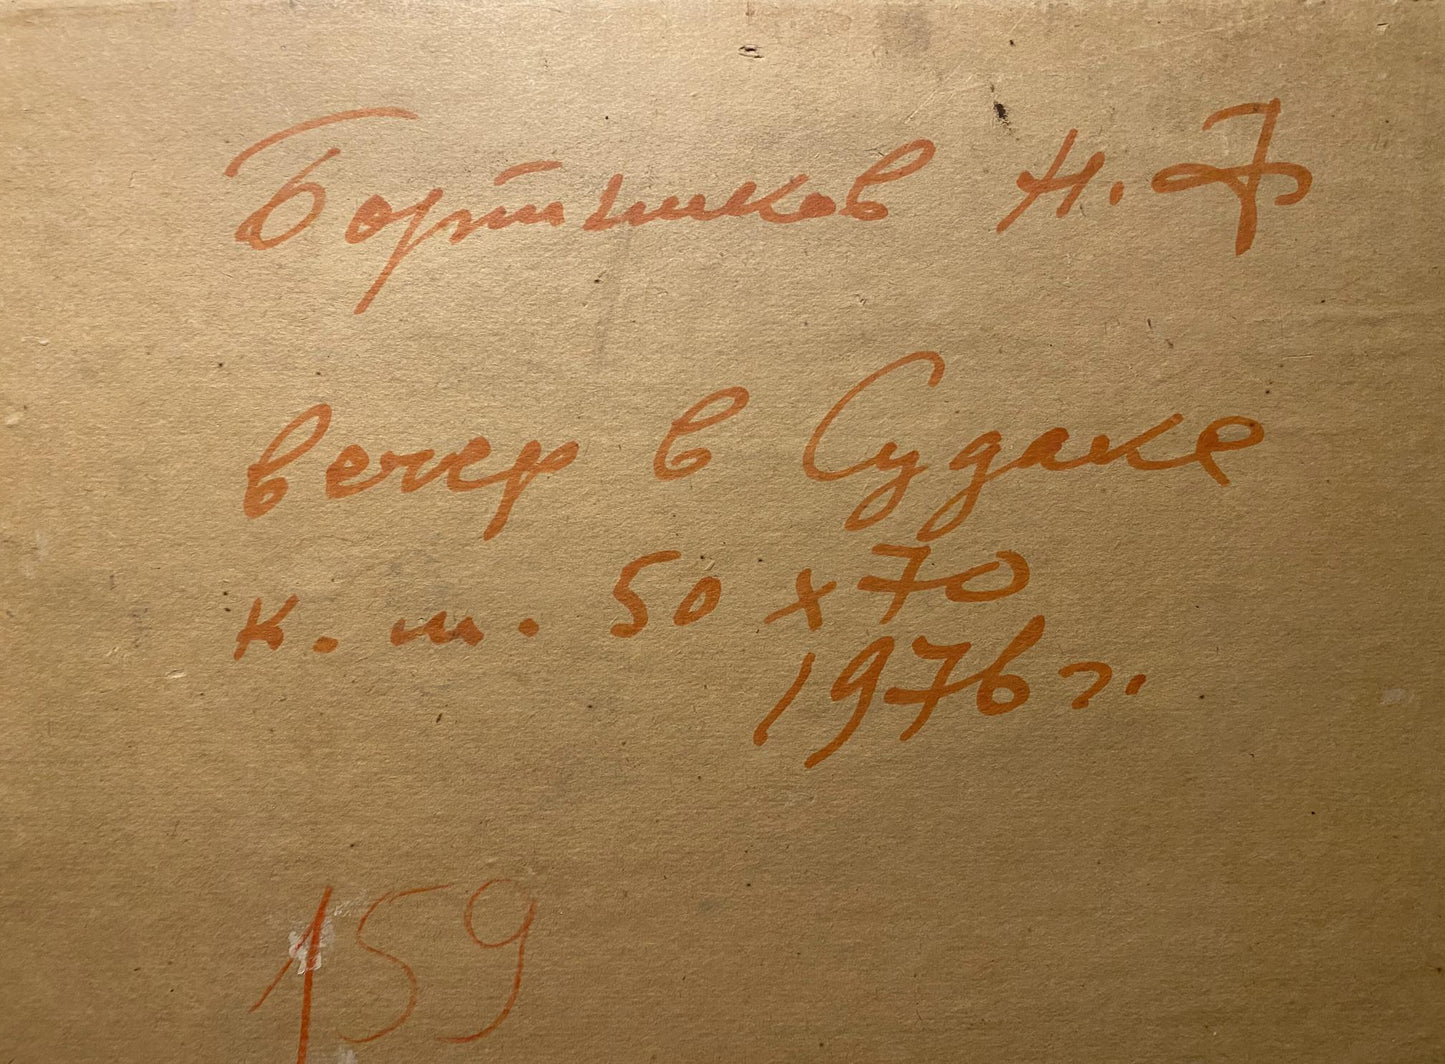 Бортников Н. Ф
вечер в Судаке
к. м. 50 х 70
1976 г.
159